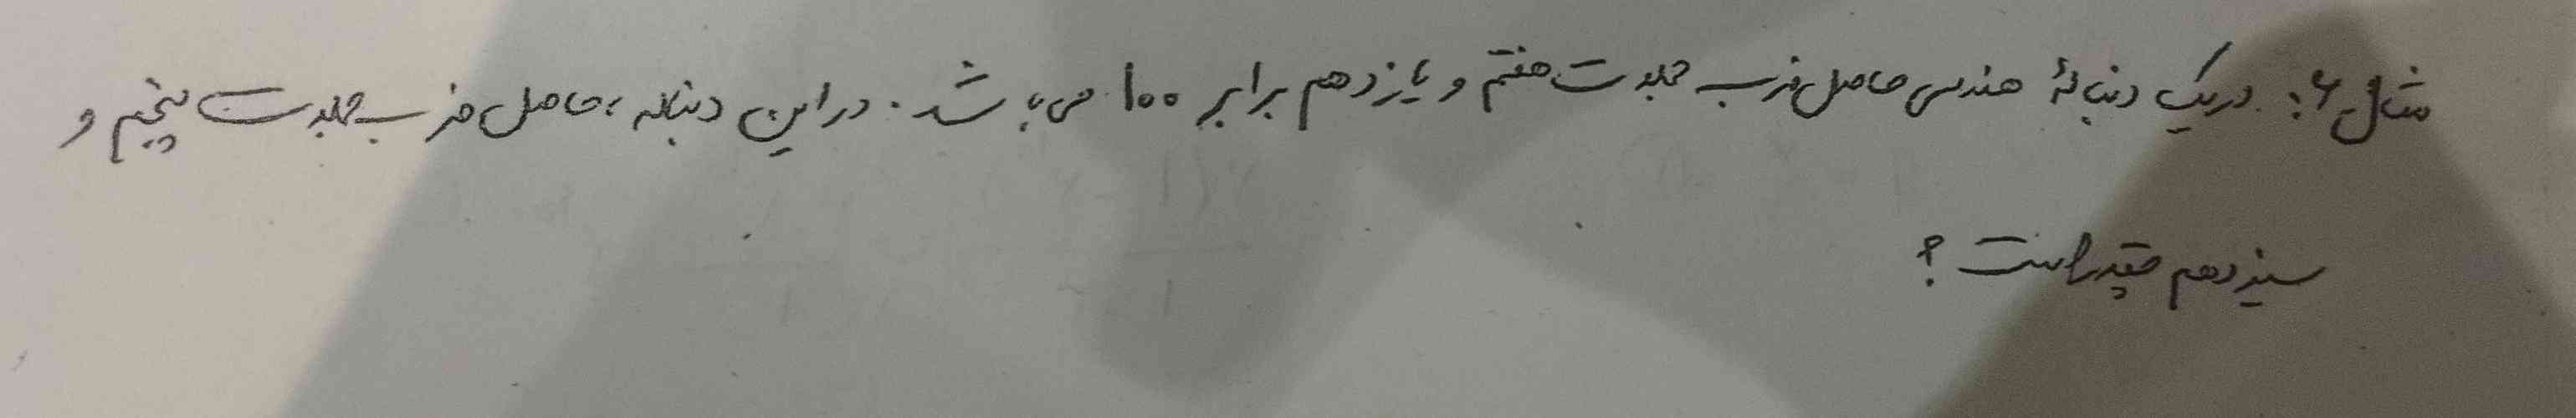 مثال ۶: در یک دنبالهٔ هندسی حاصل ضرب جملات هفتم و یازدهم برابر ۱۰۰ می باشد. در این دنباله، حاصل ضرب جملات پنجم و
سیزدهم چقدر است؟